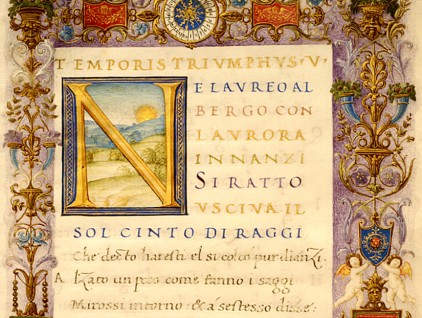 TEMPORIS TRIVMPHVS·V·
NE LAVREO AL
BERGO CON
LAVRORA
INNANZI
SI RATTO
VSCIVA IL
SOL CINTO DI RAGGI
Che decto haresti el si colcò pur dianzi.
Alzato un poco come fanno i saggi
Mirossi intorno & a se stesso disse: